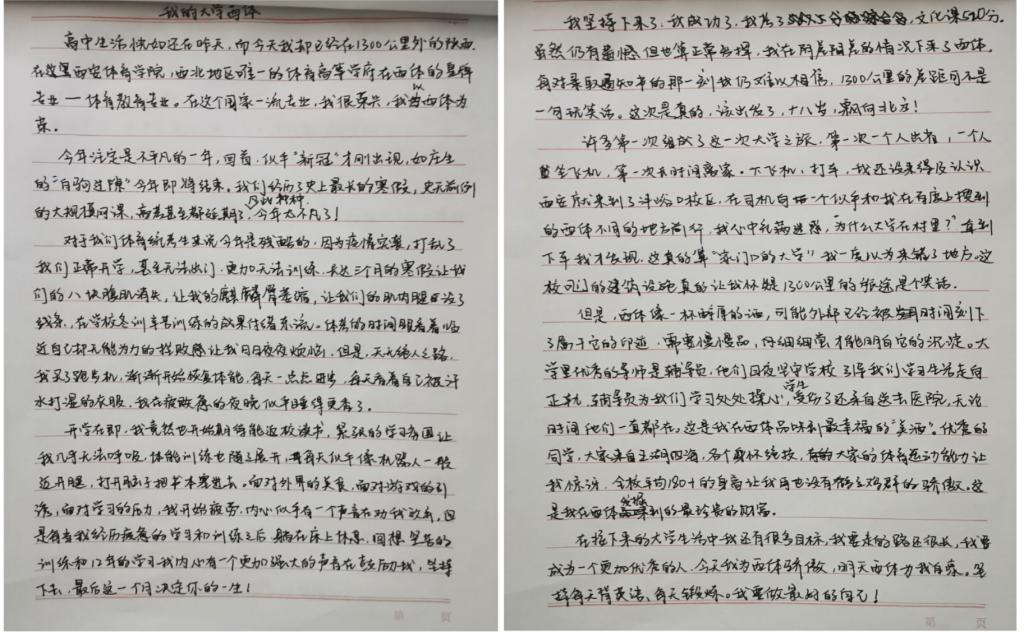 我的大学西体
高中生活恍如还在昨天,而今天我却已经在1300公里外的陕西.
在这里西安体育学院,西北地区唯一的体育高等学府在西体的王牌
专业——体育教育专业。在这个国家一流专业,我很荣兴,我以西体为
荣。
今年注定是不平凡的一年,回首,似乎"新冠"才刚出现,如庄生
的"白驹过隙"今年即将结束。我们经历了史上最长的寒假,史无前例
的大规模网课,高考甚至都延期了,今年太不凡了!
对于我们体育统考生来说今年是残酷的,因为疫情突袭,打乱了
我们正常开学,甚至无法出门.更加无法训练.长达三个月的寒假让我
们的八块腹肌消失,让我的麒麟臂萎缩,让我们的肌肉腿没了
线条,在学校冬训辛苦训练的成果付诸东流。体考的时间眼看着临
近自己却无能为力的挫败感让我日日夜夜烦恼,但是,天无绝人之路,
我买了跑步机,渐渐开始恢复体能,每天一点点进步,每天看着自己被汗
水打湿的衣服,我在疲惫的夜晚似乎睡得更香了。
开学在即,我竟然也开始期待能返校读书,紧张的学习氛围让
我几乎无法呼吸,体能训练也随之展开,每天似乎像机器人一般
迈开腿,打开脑子把书本塞进去。面对外界的美食,面对游戏的引
诱,面对学习的压力,我开始疲劳.内心似乎有一个声音在劝我放弃,但
是每当我经历疲惫的学习和训练之后躺在床上休息,回想坚苦的
训练和12年的学习我内心有一个更加强大的声音在鼓励我,坚持
下去,最后这一个月决定你的一生!
第 页
我坚持下来了,我成功了,我考了文化课520分.
虽然仍有遗憾但也算正常发挥,我在阴差阳差的情况下来了西体,
每对录取通知书的那一刻我仍难以相信,1300公里的差距可不是
一句玩笑话。这次是真的,该出发了,十八岁,飘向北方!
许多第一次组成了这一次大学之旅,第一次一个人出省,一个人
坐飞机,第一次长时间离家,下飞机,打车,我还没来得及认识
西安就来到了沣峪口校区,在司机向一个似乎和我在百度上搜到
的西体不同的地方前行,我心中充满迷惑,"为什么大学在村里?"直到
下车我才发现,这真的算"家门口的大学"我一度以为来错了地方.这
校门的建筑设施真的让我怀疑1300公里的旅途是个笑话.
但是,西体像一杯醇厚的酒,可能外部已经被时间刻下
了属于它的印迹,需要慢慢品,仔细细尝,才能明白它的沉淀。大
学里优秀的导师是辅导员,他们日夜坚守学校了导我们学习生活走向
正轨,辅导员为我们学习处处操心,学生受伤了还亲自送去医院,无论
时间他们一直都在,这是我在西体品味到最幸福的"美酒"。优秀的
同学,大家来自五湖四海,各个身怀绝技,有的大家的体育运动能力让
我惊讶,全校平均180+的身高让我再也没有鹤立鸡群的骄傲。这
是我在西体发掘到的最珍贵的财富.
在接下来的大学生活中我还有很多目标,我要走的路还很长,我要
成为一个更加优秀的人,今天我为西体骄傲,明天西体为我自豪。坚
持每天背英语,每天锻炼。我要做最好的自己!
第 页